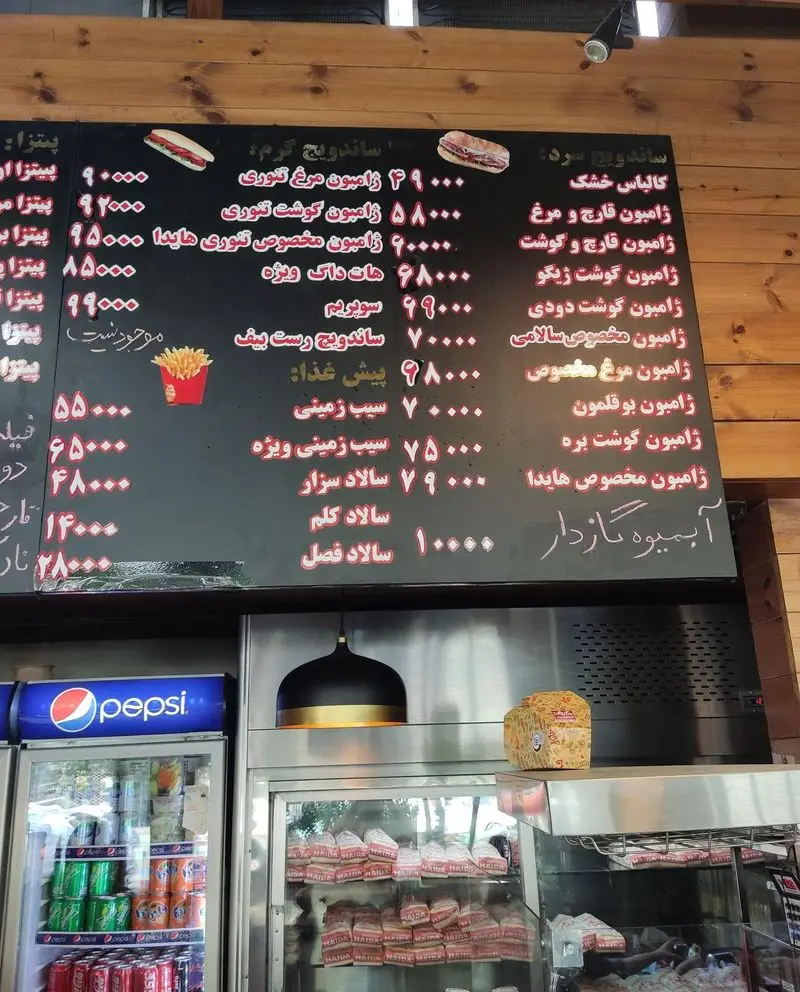 ساندویچ سرد:
کالباس خشک ۴۹۰۰۰
ژامبون قارچ و مرغ ۵۸۰۰۰
ژامبون قارچ و گوشت ۶۰۰۰۰
ژامبون گوشت ژیگو ۶۸۰۰۰
ژامبون گوشت دودی ۶۹۰۰۰
ژامبون مخصوص سالامی ۷۰۰۰۰
ژامبون مرغ مخصوص ۶۸۰۰۰
ژامبون بوقلمون ۷۰۰۰۰
ژامبون گوشت بره ۷۵۰۰۰
ژامبون مخصوص هایدا ۷۹۰۰۰
آبمیوه گازدار ۱۰۰۰۰
ساندویچ گرم:
ژامبون مرغ تنوری ۹۰۰۰۰
ژامبون گوشت تنوری ۹۲۰۰۰
ژامبون مخصوص تنوری هایدا ۹۵۰۰۰
هات داگ ویژه ۸۵۰۰۰
سوپریم ۹۹۰۰۰
ساندویچ رست بیف موجود نیست
پیش غذا:
سیب زمینی ۵۵۰۰۰
سیب زمینی ویژه ۶۵۰۰۰
سالاد سزار ۴۸۰۰۰
سالاد کلم ۱۴۰۰۰
سالاد فصل ۲۸۰۰۰
پیتزا:
پیتزا
پیتزا
پیتزا
پیتزا
پیتزا
پیتزا
پیتزا
pepsi
HAIDA